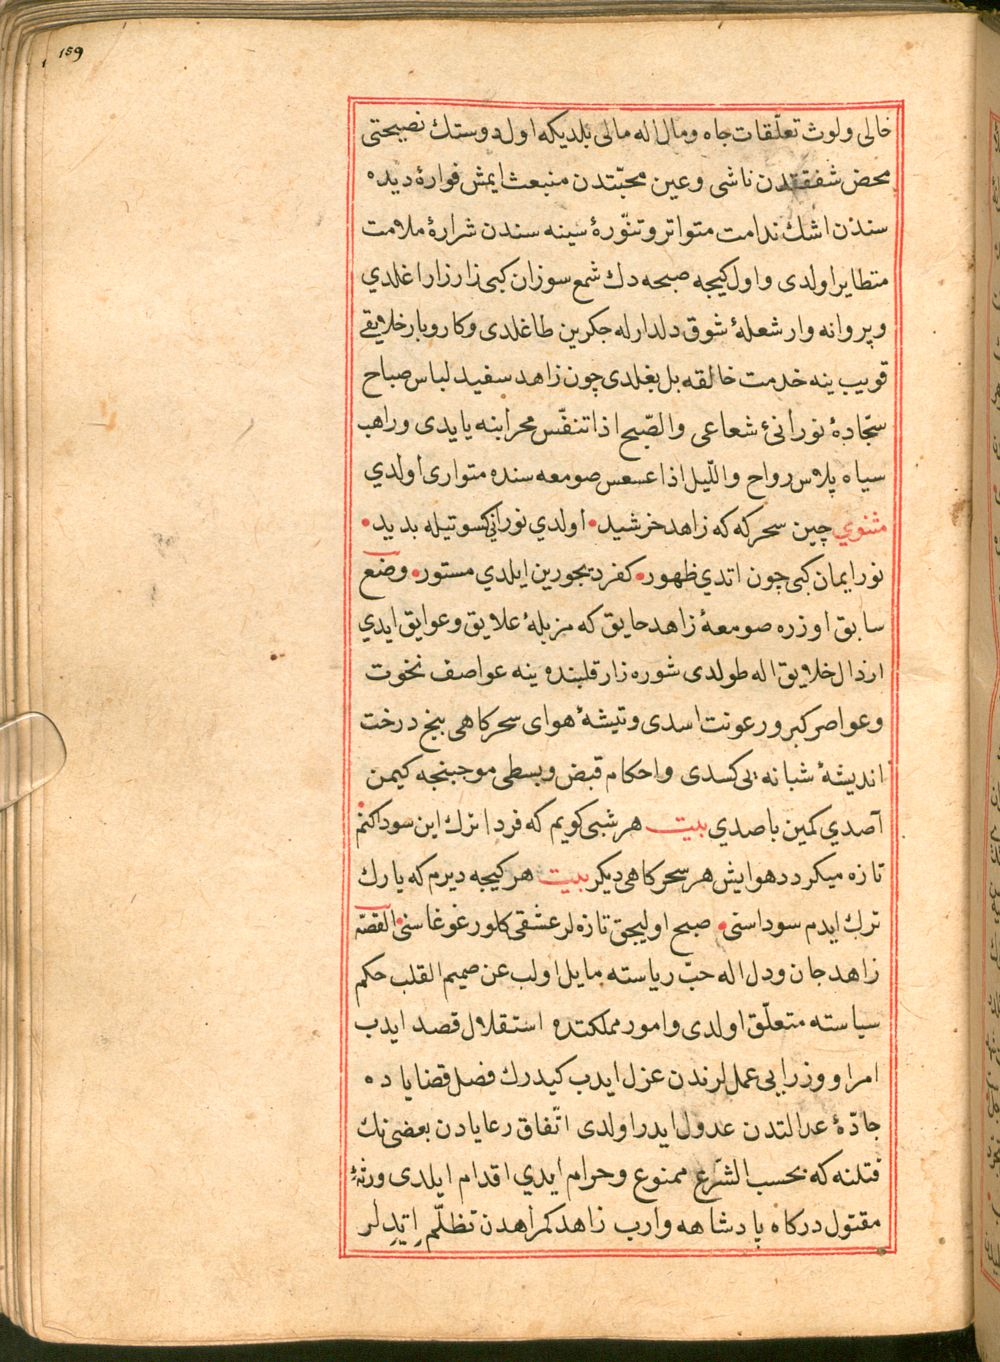 159
خالی ولوث تعلّقات جاه ومال اله مالی بلدیکه اول دوستك نصیحتی
محض شفقتدن ناشی وعین محبّتدن منبعث ایمش فوارهٔ دیده
سندن اشك ندامت متواتر وتنّورهٔ سینه سندن شرارهٔ ملامت
متطایر اولدی واول کیجه صبحه دك شمع سوزان کبی زار زار اغلدي
وپروانه وار شعلهٔ شوق دلدارله جکرین طاغلدی وکاروبار خلایقی
قویب ینه خدمت خالقه بل بغلدی چون زاهد سفید لباس صباح
سجّادهٔ نورانئ شعاعی والصّبح اذا تنفّس محرابنه یایدی وراهب
سیاه پلاس رواح واللّیل اذا عسعس صومعه سنده متواری اولدي
مثنوي چین سحرکه که زاهد خرشید اولدي نورانی کسوتیله بدید
نور ایمان کبی چون اتدي ظهور کفر دیجورین ایلدي مستور وضع
سابق اوزره صومعهٔ زاهد حایق که مزبلهٔ علایق وعوایق ایدي
ارذال خلایق اله طولدی شوره زار قلبنده ینه عواصف نخوت
وعواصر کبر ورعونت اسدی وتیشهٔ هوای سحرکاهی بیخ درخت
اندیشهٔ شبانه یی کسدی واحکام قبض وبسطی موجبنجه کیمن
آصدي کمین باصدي بیت هر شبی کویم که فردا ترك این سودا کنم
تازه میکردد هوایش هر سحرکاهی دیکر بیت هر کیجه دیرم که یارك
ترك ایدم سوداسنی صبح اولیجق تازه لر عشقی کلور غوغاسنی القصّه
زاهد جان ودل اله حبّ ریاسته مایل اولب عن صمیم القلب حکم
سیاسته متعلّق اولدی وامور مملکتده استقلال قصد ایدب
امرا ووزرایی عمل لرندن عزل ایدب کیدرك فصل قضایاده
جادّهٔ عدالتدن عدول ایدر اولدی اتّفاق رعایادن بعضی نك
قتلنه که بحسب الشّرع ممنوع وحرام ایدي اقدام ایلدی ورثهٔ
مقتول درکاه پادشاهه وارب زاهد کمراهدن تظلّم اتیدلر